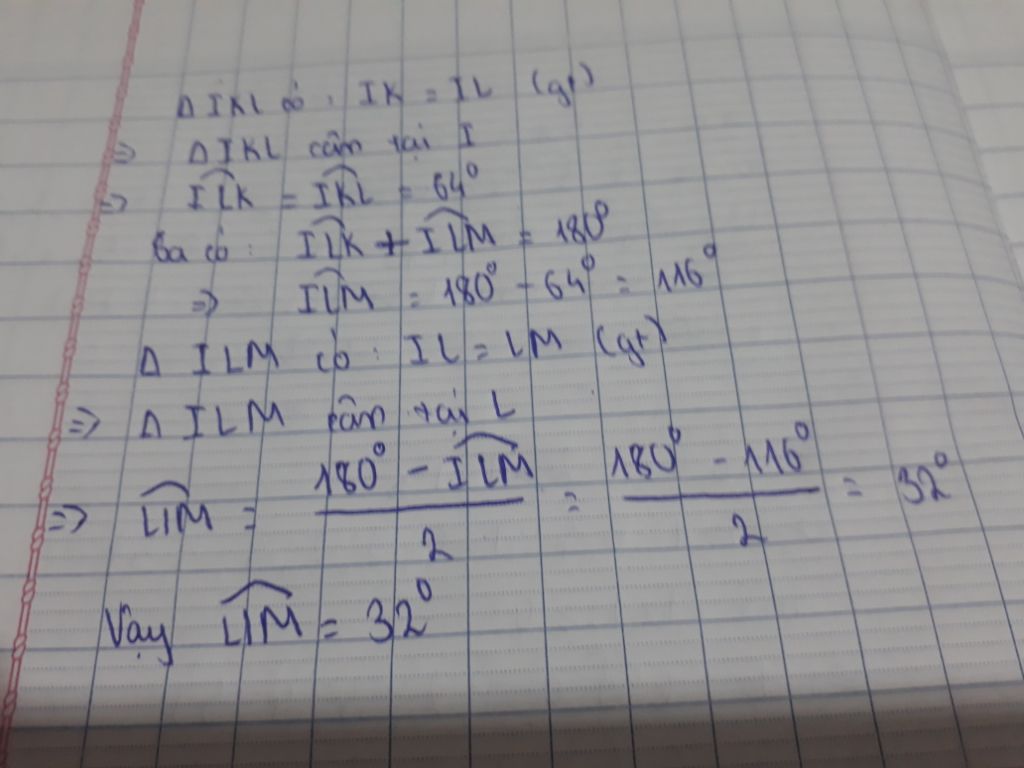 Δ IKL có : IK = IL (gt)
=> Δ IKL cân tại I
=> ILK = IKL = 64⁰
Ta có : ILK + ILM = 180⁰
=> ILM = 180⁰ - 64⁰ = 116⁰
Δ ILM có : IL = LM (gt)
=> Δ ILM cân tại L
=> LIM = (180⁰ - ILM) / 2 = (180⁰ - 116⁰) / 2 = 32⁰
Vậy LIM = 32⁰